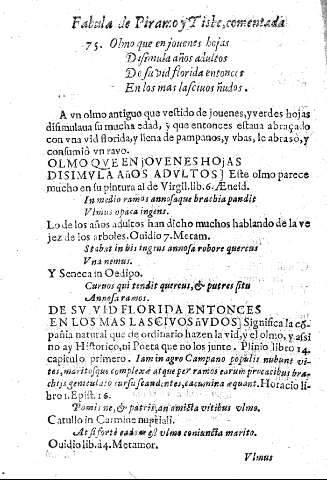 Fabula de Piramo y Tisbe, comentada
75. Olmo que en jouenes hojas
Disimula años adultos
De su vid florida entonces
En los mas lasciuos ñudos.
A vn olmo antiguo que vestido de jouenes, y verdes hojas
disimulaua su mucha edad, y que entonces estaua abraçado
con vna vid florida, y llena de pampanos, y vbas, le abrasò, y
consumiò vn rayo.
OLMO QVE EN JOVENES HOJAS
DISIMULA AñOS ADULTOS] Este olmo parece
mucho en su pintura al de Virgil. lib. 6. Æneid.
In medio ramos annosaque brachia pandit
Vlmus opaca ingens.
Lo de los años adultos han dicho muchos hablando de la ve
jez de los arboles. Ouidio 7. Metam.
Stabat in his ingens annosa robore quercus
Vna nemus.
Y Seneca in Oedipo.
Curuos qui tendit quercus, & putres situ
Annosa ramos.
DE SU VID FLORIDA ENTONCES
EN LOS MAS LASCIVOS ñVDOS] Significa la cõ
pañia natural que de ordinario hazen la vid, y el olmo, y assi
no ay Historico, ni Poeta que no los junte. Plinio libro 14.
capitulo primero. Iam in agro Campano populis nubunt vi-
tes, maritosque complexæ atque per ramos earum procacibus bra-
chijs geniculato cursu scandentes, cacumina æquant. Horacio li-
bro 1. Epist. 16.
Pomisne, & patris, an amicta vitibus vlmo.
Catullo in Carmine nuptiali.
At si forte eadem est vlmo coniuncta marito.
Ouidio lib. 14. Metamor.
Vlmus